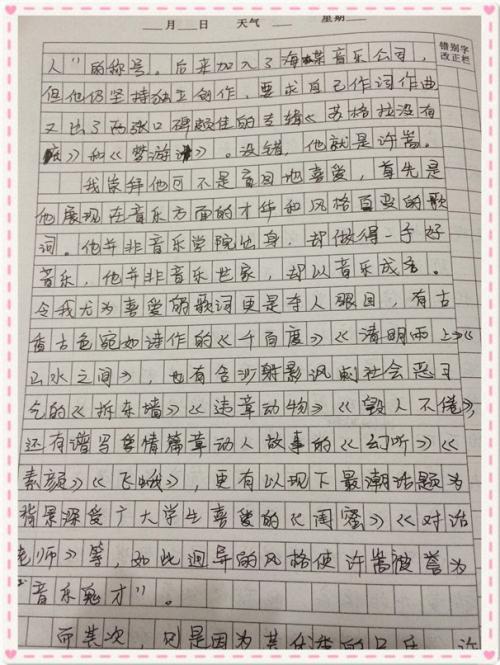 ___月___日 天气___ 星期___
错别字
改正栏
人"的称号。后来加入了海蝶音乐公司,
但他仍坚持独立创作,要求自己作词作曲
又出了两张口碑颇佳的专辑《苏格拉没有
底》和《梦游计》。没错,他就是许嵩。
我崇拜他可不是盲目地喜爱,首先是
他展现在音乐方面的才华和风格百变的歌
词。他并非音乐学院出身,却做得一手好
音乐,他并非音乐世家,却以音乐成名。
令我尤为喜爱的歌词更是夺人眼目,有古
香古色宛如诗作的《千百度》《清明雨上》《
山水之间》,也有含沙射影讽刺社会恶习
气的《拆东墙》《违章动物》《毁人不倦》,
还有谱写爱情篇章动人故事的《幻听》《
素颜》《飞蛾》,更有以现下最潮话题为
背景深受广大学生喜爱的《闺蜜》《对话
老师》等,如此迥异的风格使许嵩被誉为
"音乐鬼才"。
而其次,只是因为其乐迷的